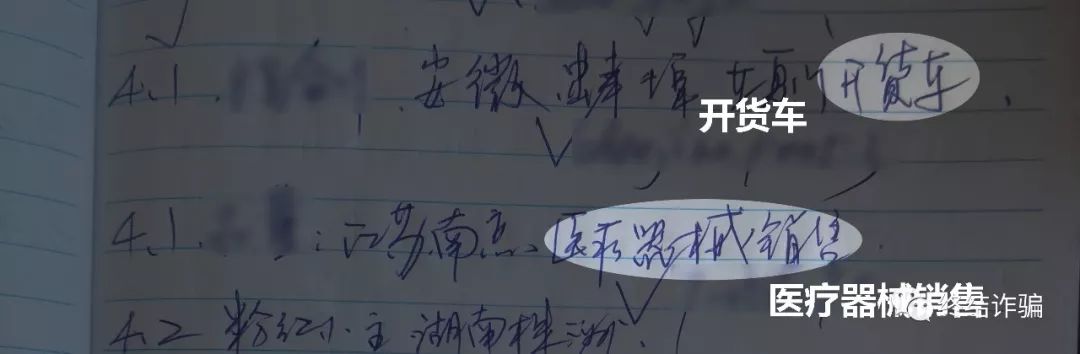 4.1. 安徽.蚌埠 开货车.
开货车
4.1. : 江苏南京、医疗器械销售.
医疗器械销售
终结诈骗
4.2 粉红小主 湖南株洲.